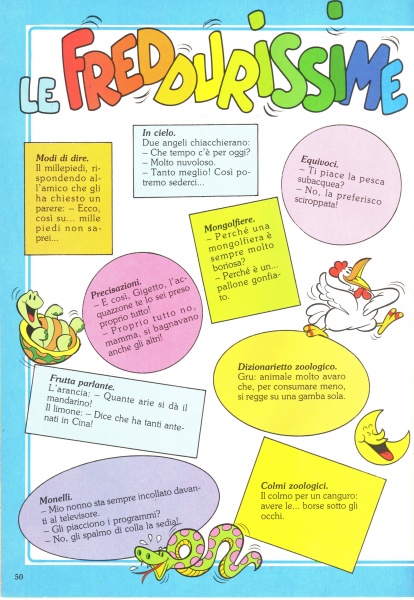 LE FREDDURISSIME
In cielo.
Due angeli chiacchierano:
– Che tempo c'è per oggi?
– Molto nuvoloso.
– Tanto meglio! Così po-
tremo sederci...
Modi di dire.
Il millepiedi, ri-
spondendo al-
l'amico che gli
ha chiesto un
parere: – Ecco,
così su... mille
piedi non sa-
prei...
Equivoci.
– Ti piace la pesca
subacquea?
– No, la preferisco
sciroppata!
Mongolfiere.
– Perché una
mongolfiera è
sempre molto
boriosa?
– Perché è un...
pallone gonfia-
to.
Precisazioni.
– E così, Gigetto, l'ac-
quazzone te lo sei preso
proprio tutto!
– Proprio tutto no,
mamma, si bagnavano
anche gli altri!
Dizionarietto zoologico.
Gru: animale molto avaro
che, per consumare meno,
si regge su una gamba sola.
Frutta parlante.
L'arancia: – Quante arie si dà il
mandarino!
Il limone: – Dice che ha tanti ante-
nati in Cina!
Monelli.
– Mio nonno sta sempre incollato davan-
ti al televisore.
– Gli piacciono i programmi?
– No, gli spalmo di colla la sedia!
Colmi zoologici.
Il colmo per un canguro:
avere le... borse sotto gli
occhi.
50